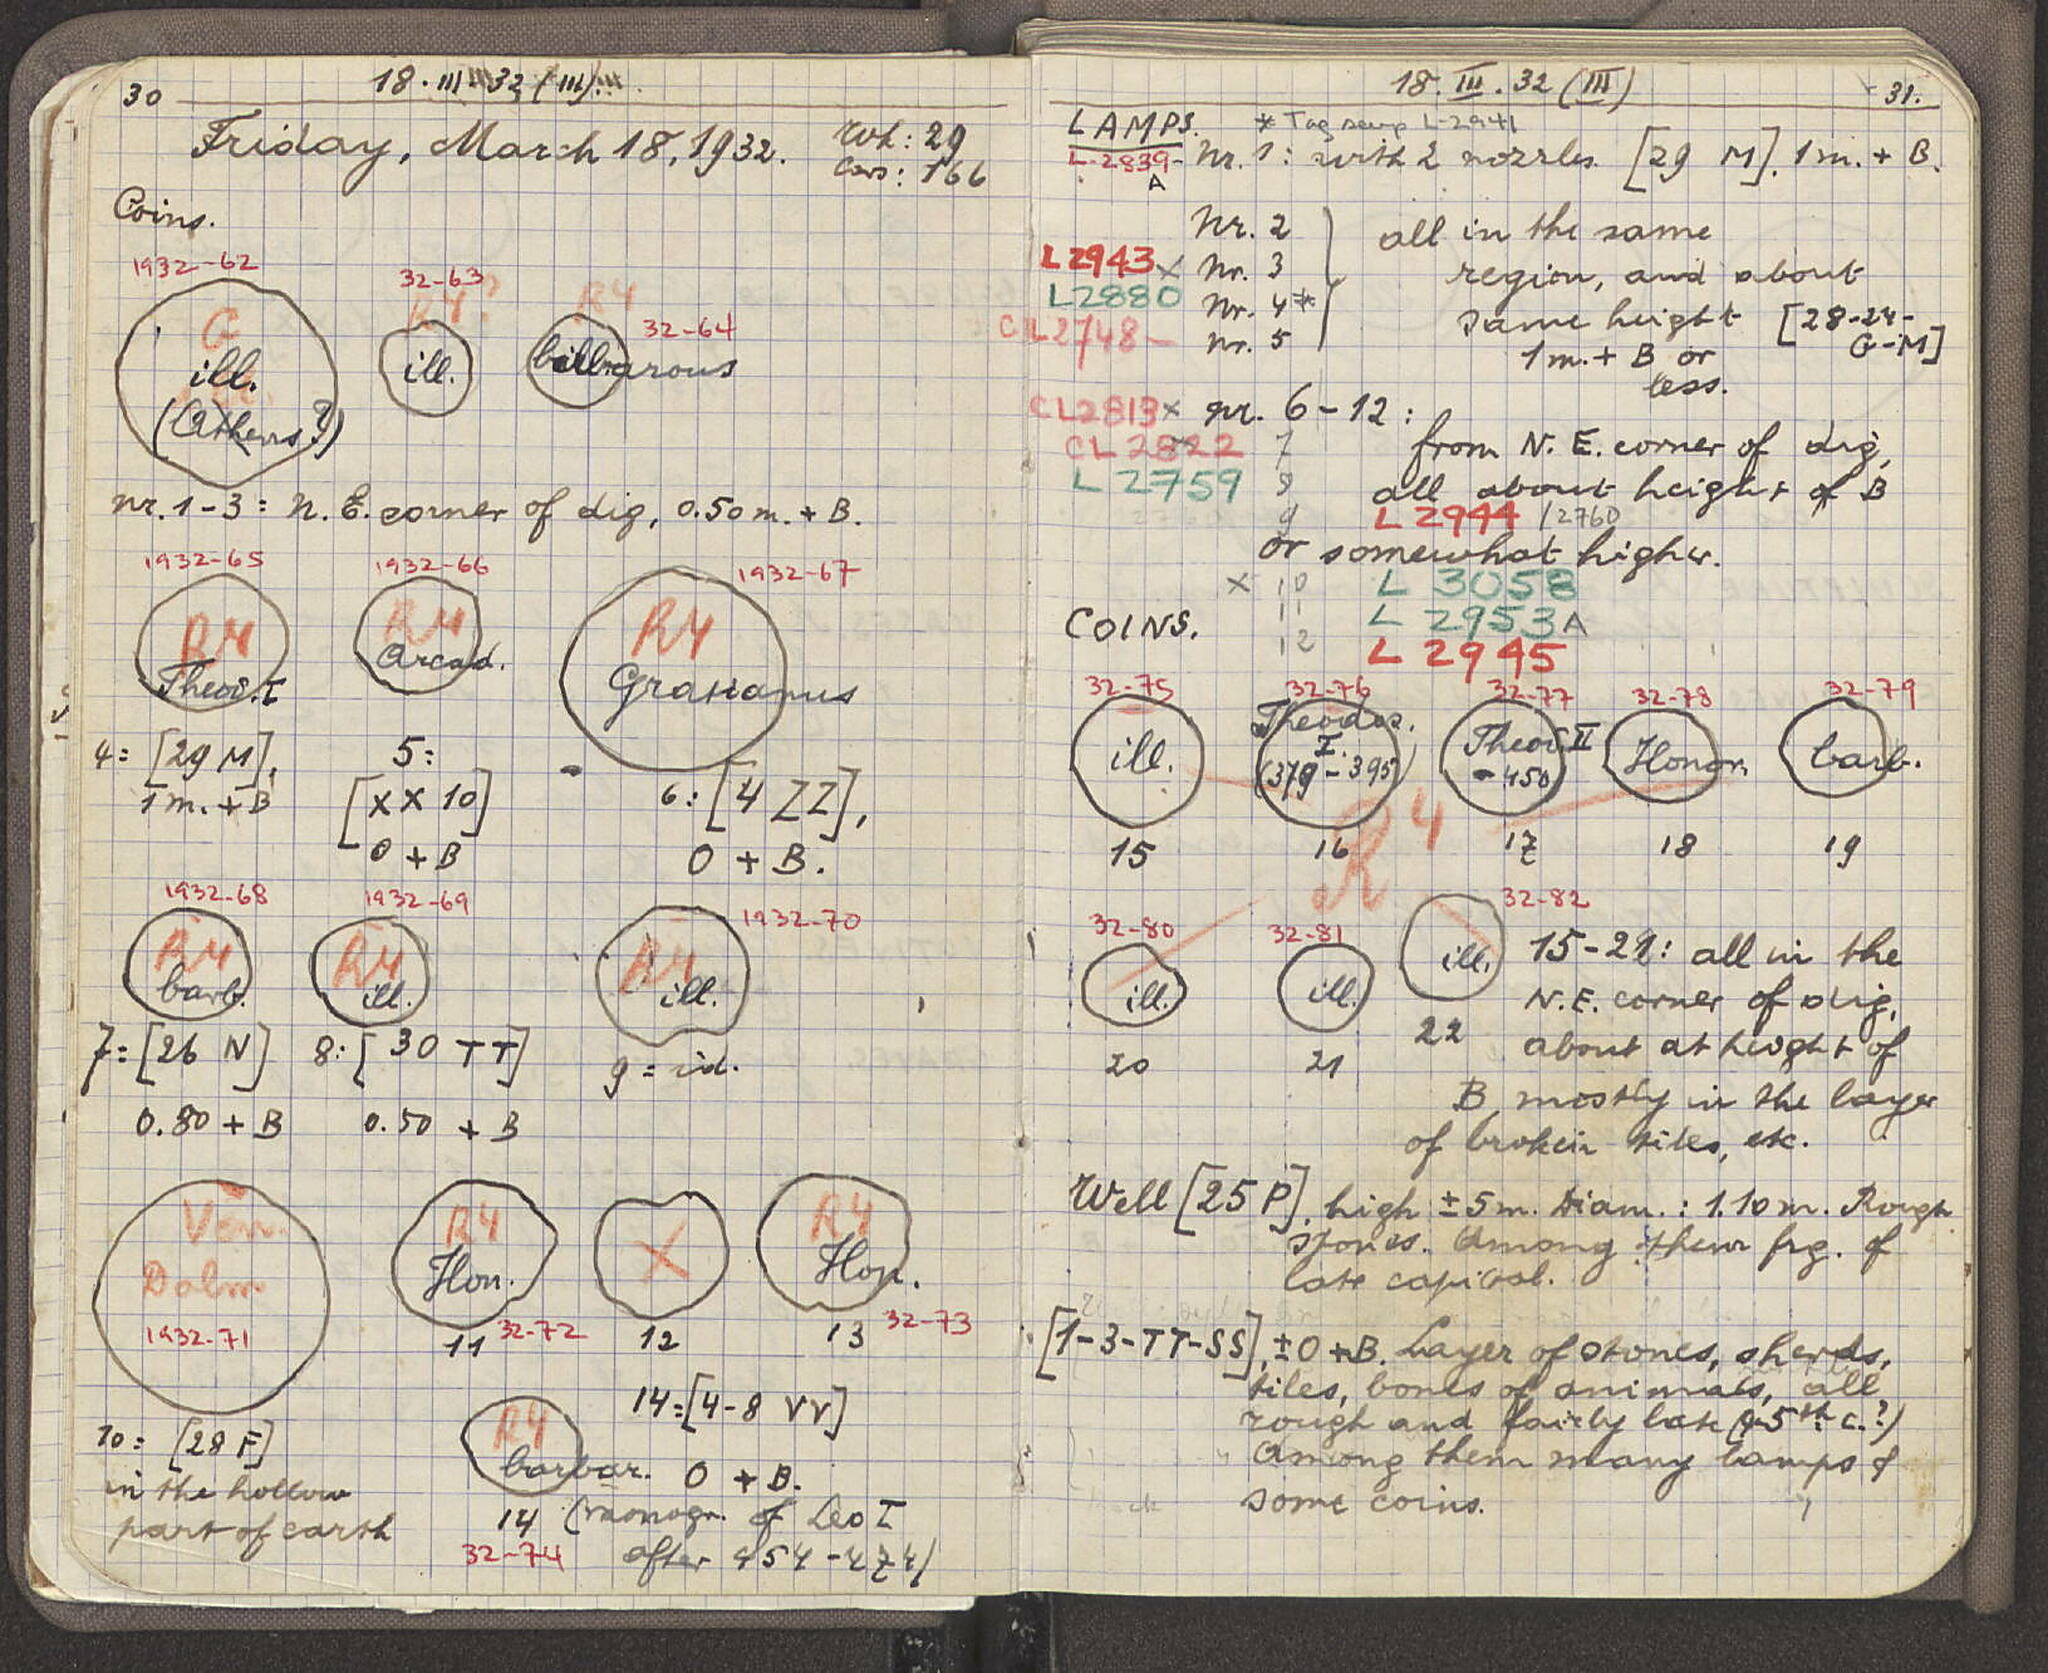 30
18·III·32 (III)
Friday, March 18, 1932.
Wk: 29
Cars: 166
Coins.
1932-62
32-63
R4?
R4
32-64
G
ill.
(Athens?)
ill.
barbarous
nr. 1-3 = N.E. corner of dig, 0.50 m. + B.
1932-65
1932-66
1932-67
R4
R4
R4
Theod. I
Arcad.
Gratianus
4 = [29 M],
1 m. + B
5:
[XX 10]
0 + B
6: [4 ZZ],
0 + B.
1932-68
1932-69
1932-70
R4
R4
R4
barb.
ill.
ill.
7 = [26 N]
8: [30 TT]
9 = id.
0.80 + B
0.50 + B
Ven.
Dalm
1932-71
R4
Hon.
X
R4
Hon.
11
32-72
12
13
32-73
10 = [28 F]
in the hollow
part of earth
R4
barbar.
14 = [4-8 VV]
0 + B.
14
(monogr. of Leo I
32-74
after 454-474)
18. III. 32 (III)
31.
LAMPS.
* Tag says L-2941
L-2839-
A
Nr. 1: with 2 nozzles [29 M], 1 m. + B.
Nr. 2
all in the same
L2943 x
Nr. 3
region, and about
L2880
Nr. 4*
same height [28-24-
G-M]
CL2748-
Nr. 5
1 m. + B or
less.
CL2813 x
nr. 6-12:
CL2822
7
from N.E. corner of dig,
L2759
8
all about height of B
9
L 2944 /2760
or somewhat higher.
x 10
L 3058
11
L 2953A
COINS.
12
L 2945
32-75
32-76
32-77
32-78
32-79
ill.
Theodos.
I.
(379-395)
Theod. II
-450
Honor.
barb.
15
16
17
18
19
R4
32-80
32-81
32-82
ill.
ill.
ill.
20
21
22
15-21: all in the
N.E. corner of dig,
about at height of
B, mostly in the layer
of broken tiles, etc.
Well [25 P], high ±5 m. Diam.: 1.10 m. Rough
stones. Among them frg. of
late capital.
[1-3-TT-SS], ±0 + B. Layer of stones, sherds,
tiles, bones of animals, all
rough and fairly late (4-5th c.?)
Among them many lamps &
some coins.